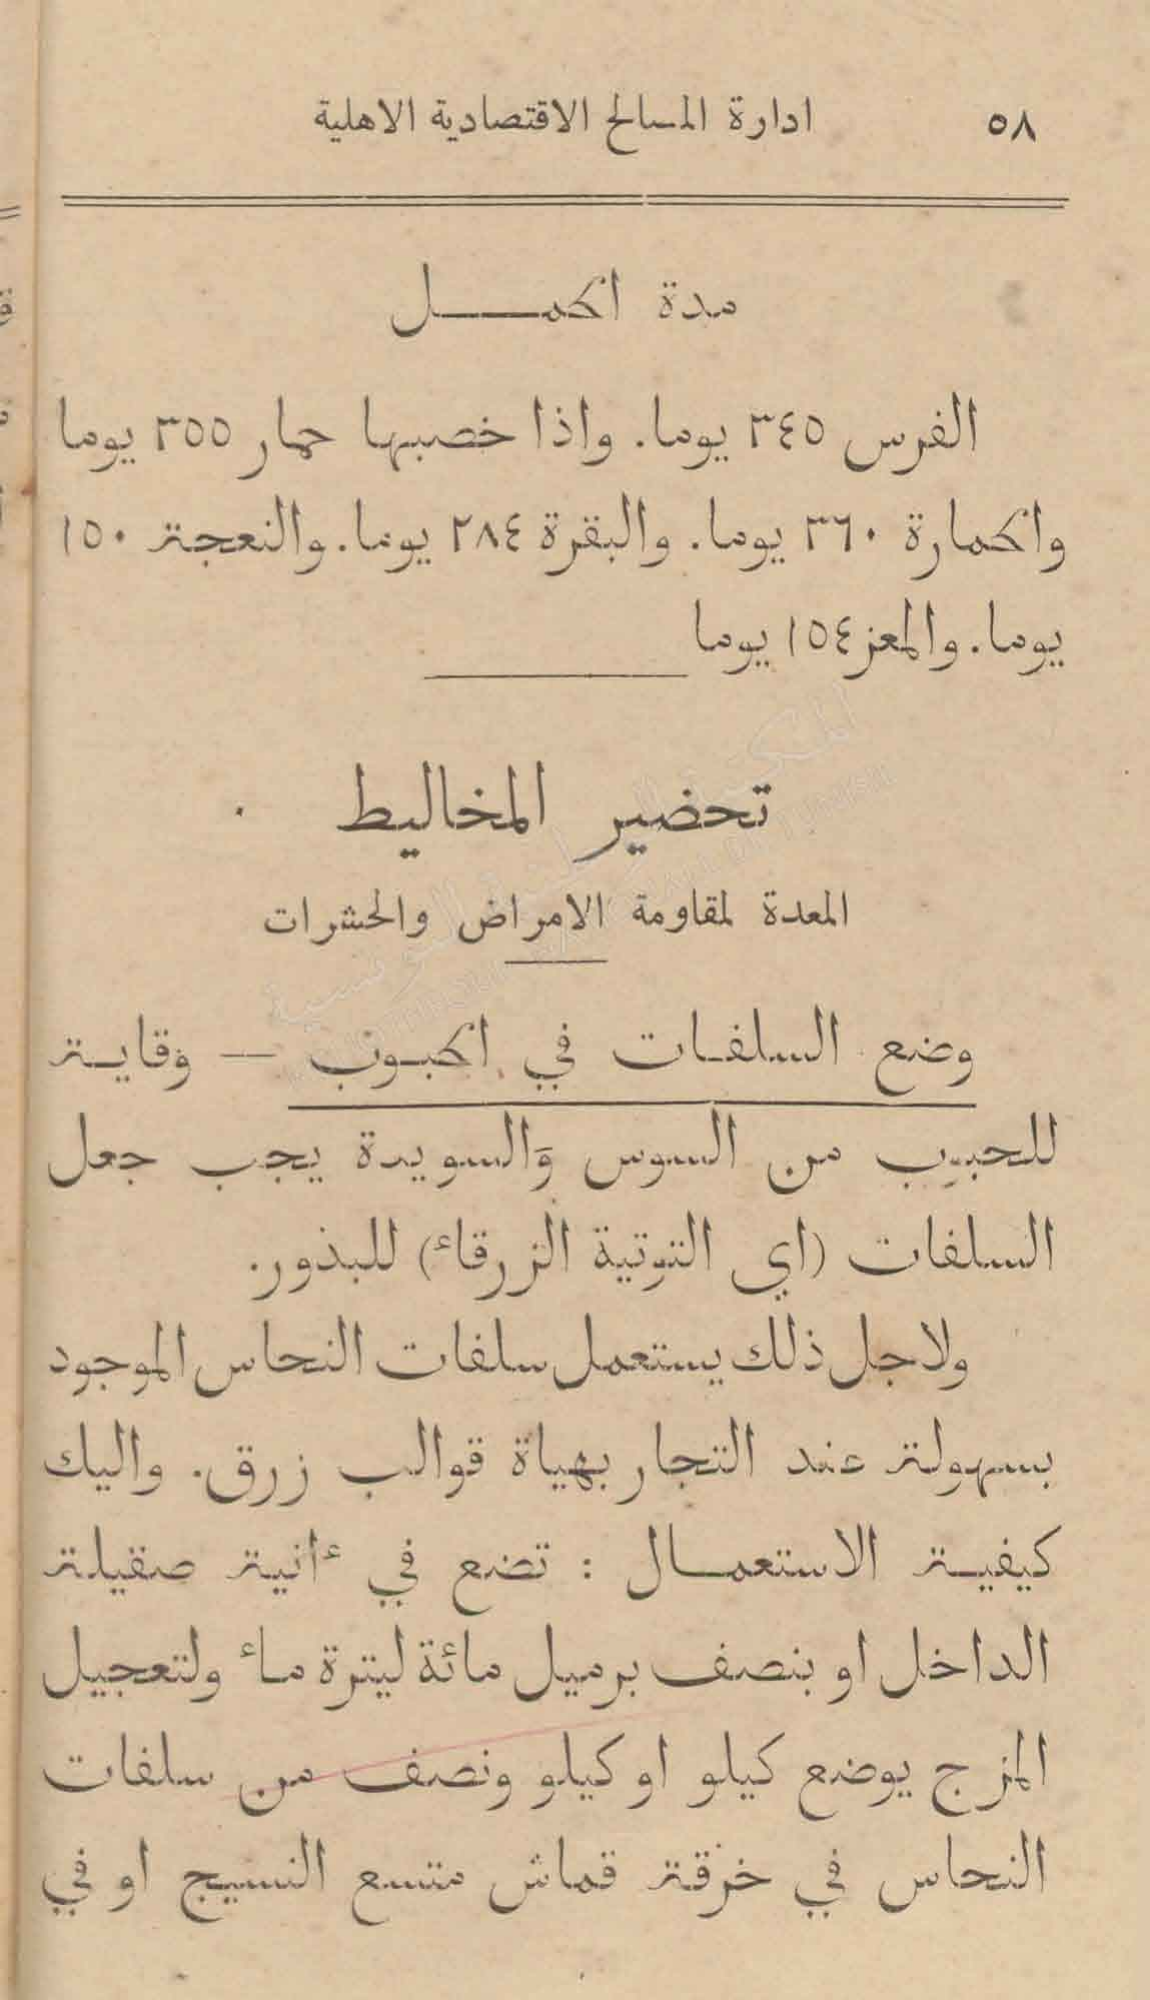 ٥٨ ادارة المسالح الاقتصادية الاهلية
مدة الحمـــل
الفرس ٣٤٥ يوما. واذا خصبها حمار ٣٥٥ يوما
والحمارة ٣٦٠ يوما. والبقرة ٢٨٤ يوما. والنعجة ١٥٠
يوما. والمعز ١٥٤ يوما
تحضير المخاليط
المعدة لمقاومة الامراض والحشرات
وضع السلفات في الحبوب — وقاية
للحبوب من السوس والسويدة يجب جعل
السلفات (اي التوتية الزرقاء) للبذور.
ولاجل ذلك يستعمل سلفات النحاس الموجود
بسهولة عند التجار بهياة قوالب زرق. واليك
كيفية الاستعمـال : تضع في ءانية صقيلة
الداخل او بنصف برميل مائة ليترة ماء ولتعجيل
المزج يوضع كيلو او كيلو ونصف من سلفات
النحاس في خرقة قماش متسع النسيج او في
المكتبة الوطنية التونسية